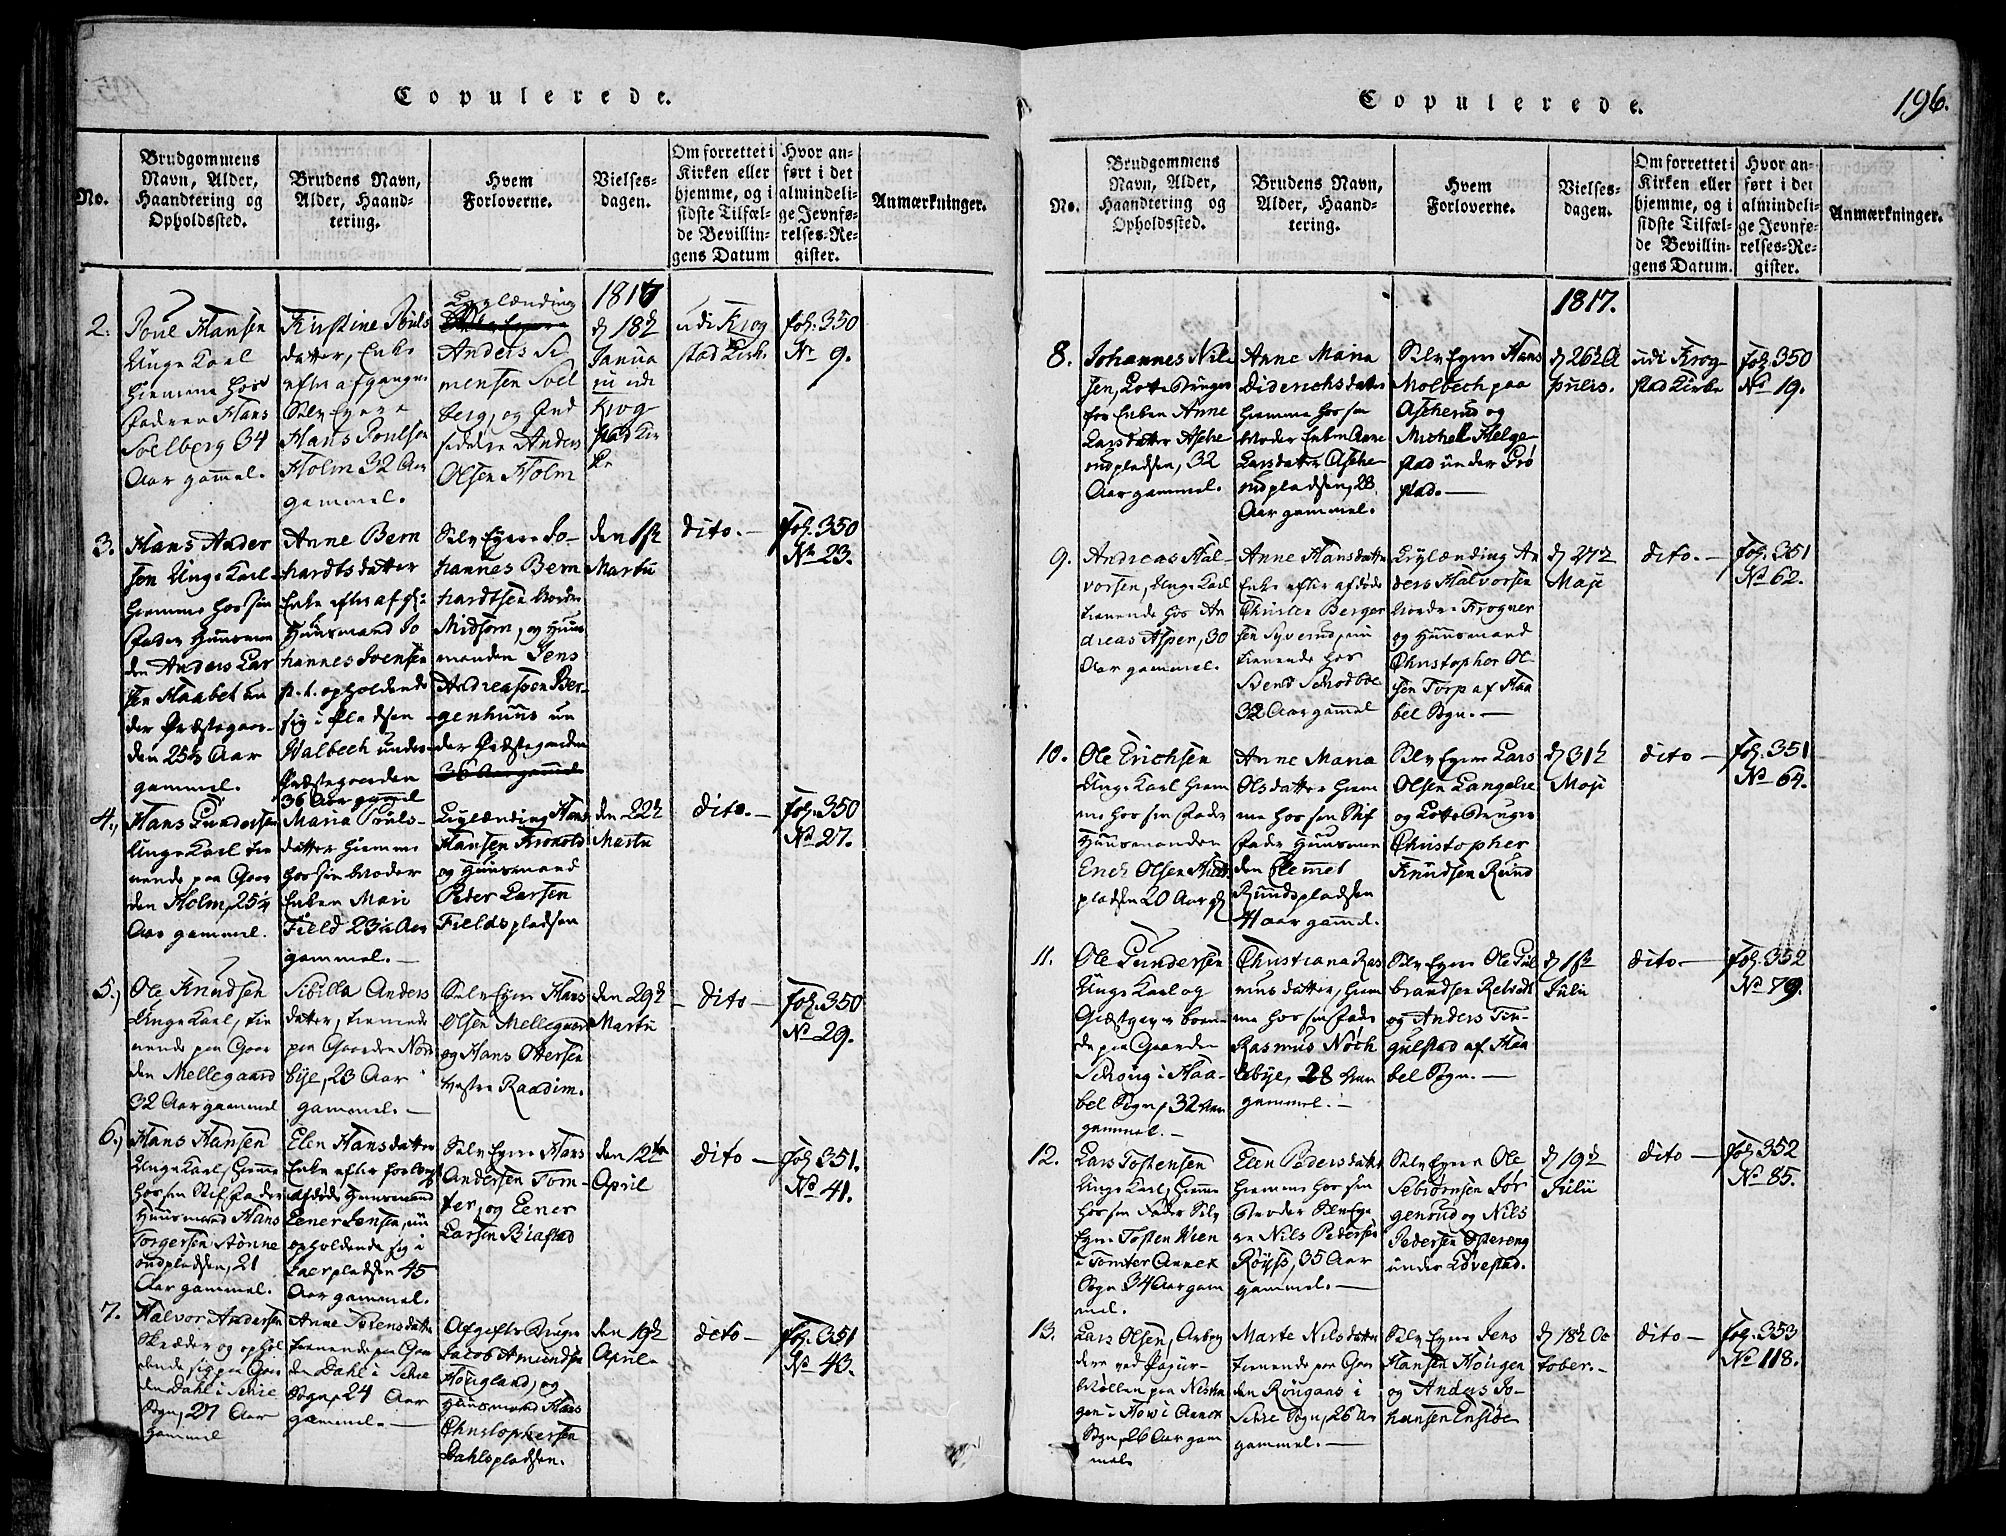 Copulerede.
No.
Brudgommens
Navn, Alder,
Haandtering og
Opholdssted.
Brudens Navn,
Alder, Haand-
tering.
Hvem
Forloverne.
Vielses-
dagen.
Om forrettet i
Kirken eller
hjemme, og i
sidste Tilfæl-
de Bevillin-
gens Datum
Hvor an-
ført i det
almindeli-
ge Jevnfø-
relses-Re-
gister.
Anmærkninger.
2.
Poul Hansen
Unge Karl
hiemme hos
Faderen Hans
Soelberg 34
Aar gammel.
Kirstine Pouls
datter, Enke
efter afgangne
Selv Eyere
Hans Poulsen
Holm 32 Aar
gammel.
Anders Si
mensen Soel
berg, og Ind
sidder Anders
Olsen Holm
1817
d 18d
Janua
rii udi
Krog
stad Kir
ke
udi Krog
stad Kirke
fol. 350
No 9.
3.
Hans Ander
sen Unge Karl
hiemme hos sin
Fader Huusman
den Anders Lar
sen Haabet un
der Præstegaar-
den 25½ Aar
gammel.
Anne Bern
hardtsdatter
Enke efter afg:
Huusmand Jo
hannes Svensen
p. t. opholdende
sig i Pladsen
Halbech under
Præstegaarden
36 Aar gammel
Selv Eyere Jo-
hannes Bern
hardtsen Nordre
Midtsem, og Huus
manden Jens
Andreassen Ber-
genhuus un
der Præstegaarden
36 Aar gammel
den 1ste
Martii
dito.
fol. 350
No 23.
4.
Hans Gundersen
Unge Karl tie
nende paa Gaar
den Holm, 25¼
Aar gammel.
Maria Pouls-
datter hiemme
hos sin Moder
Enken Mari
Field 23½ Aar
gammel.
Leylænding Hans
Hansen Krokold
og Huusmand
Peder Larsen
Fieldspladsen
den 22d
Martii
dito.
fol. 350
No 27.
5.
Ole Knudsen
Unge Karl, tie
nende paa Gaar
den Mellegaard
32 Aar gammel
Sibilla Anders
datter, tienende
paa Gaarden Nord
bye, 23 Aar
gammel.
Selv Eyere Hans
Olsen Mellegaard
og Hans Ottersen
Vestre Raadim.
den 29d
Martii
dito
fol. 350
No 29.
6.
Hans Hansen
Unge Karl, hiemme
hos sin Stif Fader
Huusmand Hans
Torgersen Rønne
rudpladsen, 21
Aar gammel.
Elen Hansdatter
Enke efter
afdøde Huusmand
Eener Jensen, nu
opholdende sig i
Laerpladsen 45
Aar gammel.
Selv Eyere Hans
Andersen Tom-
ter, og Eener
Larsen Biastad
den 12te
April
dito
fol. 351.
No 41.
7.
Halvor Andersen
Skræder og ophol
dende sig paa Gaar
den Dahl i Schie
Sogn, 27 Aar
gammel
Anne Sørensdatter
tienende paa Gaar
den Dahl i Schie
Sogn, 24 Aar
gammel.
Afgifts Bruger
Jacob Amundsen
Hougland, og
Huusmand Hans
Christophersen
Dahlspladsen.
den 19d
April.
dito
fol. 351
No 43.
Copulerede.
196.
No.
Brudgommens
Navn, Alder,
Haandtering og
Opholdssted.
Brudens Navn,
Alder, Haand-
tering.
Hvem
Forloverne.
Vielses-
dagen.
Om forrettet i
Kirken eller
hjemme, og i
sidste Tilfæl-
de Bevillin-
gens Datum.
Hvor an-
ført i det
almindeli-
ge Jevnfø-
relses-Re-
gister.
Anmærkninger.
1817.
8.
Johannes Nil
sen, Lotte Bruger
hos Enken Anne
Larsdatter Asche
rudpladsen, 32
Aar gammel.
Anne Maria
Diderichsdatter
hiemme hos sin
Moder Enken Anne
Larsdatter Asche-
rudpladsen, 28
Aar gammel.
Selv Eyere Hans
Molbech paa
Ascherud og
Michell Helge-
stad under Grø
stad.
d 26d A
prilis.
udi Krog-
stad Kirke
fol. 350
No 19.
9.
Andreas Hal-
vorsen, Unge Karl
tienende hos An
dreas Aspen, 30
Aar gammel.
Anne Hansdatter
Enke efter afdøde
Christen Berger
sen Syverud, nu
tienende hos
Bend Schodboe
32 Aar gammel
Leylænding An
ders Halvorsen
Nordre Krogner
og Huusmand
Christopher Ol
sen Torp af Haa
bel Sogn.
d 27d
Maji
dito.
fol. 351
No 62.
10.
Ole Erichsen
Unge Karl hiem
me hos sin Fader
Huusmanden
Erich Olsen
pladsen 20 Aar g
Anne Maria
Olsdatter hiem
me hos sin Stif
Fader Huusman
den Clemet
Rundspladsen
41 aar gammel.
Selv Eyere Lars
Olsen Langelie
og Lotte Bruger
Christopher
Knudsen Rund
d 31d
Maji
dito
fol. 351
No 64.
11.
Ole Gundersen
Unge Karl og
Giæstgiver boen
de paa Gaarden
Schoug i Haa-
bel Sogn, 32 Aar
gammel.
Christiana Ras
musdatter, hiem
me hos sin Fader
Rasmus Nøch
lebye, 28 Aar
gammel.
Selv Eyere Ole Gul
brandsen Retvedt
og Anders Tin-
gulstad af Haa
bel Sogn.
d 1ste
Julii
dito
fol. 352
No 79.
12.
Lars Tostensen
Unge Karl, hiemme
hos sin Fader Selv
Eyere Tosten Wien
i Tomter Annex
Sogn 34 Aar gam
mel.
Elen Pedersdatter
hiemme hos sin
Broder Selv Eye
re Nils Pedersen
Røyss, 35 Aar
gammel.
Selv Eyere Ole
Sebiørnsen Jør
genrud og Nils
Pedersen Østereng
under Løvestad.
d 19d
Julii
dito
fol. 352
No 85.
13.
Lars Olsen, Arbey
dere ved Papiir-
Møllen paa
gen i Høvi Annex
Sogn, 26 Aar gam
mel.
Marte Nilsdatter
tienende paa Gaar
den Røugaas i
Schie Sogn, 26 Aar
gammel.
Selv Eyere Jens
Hansen Hougen
og Anders Jo-
hansen Ensløe
d 18d Oc
tober.
dito
fol. 353
No 118.